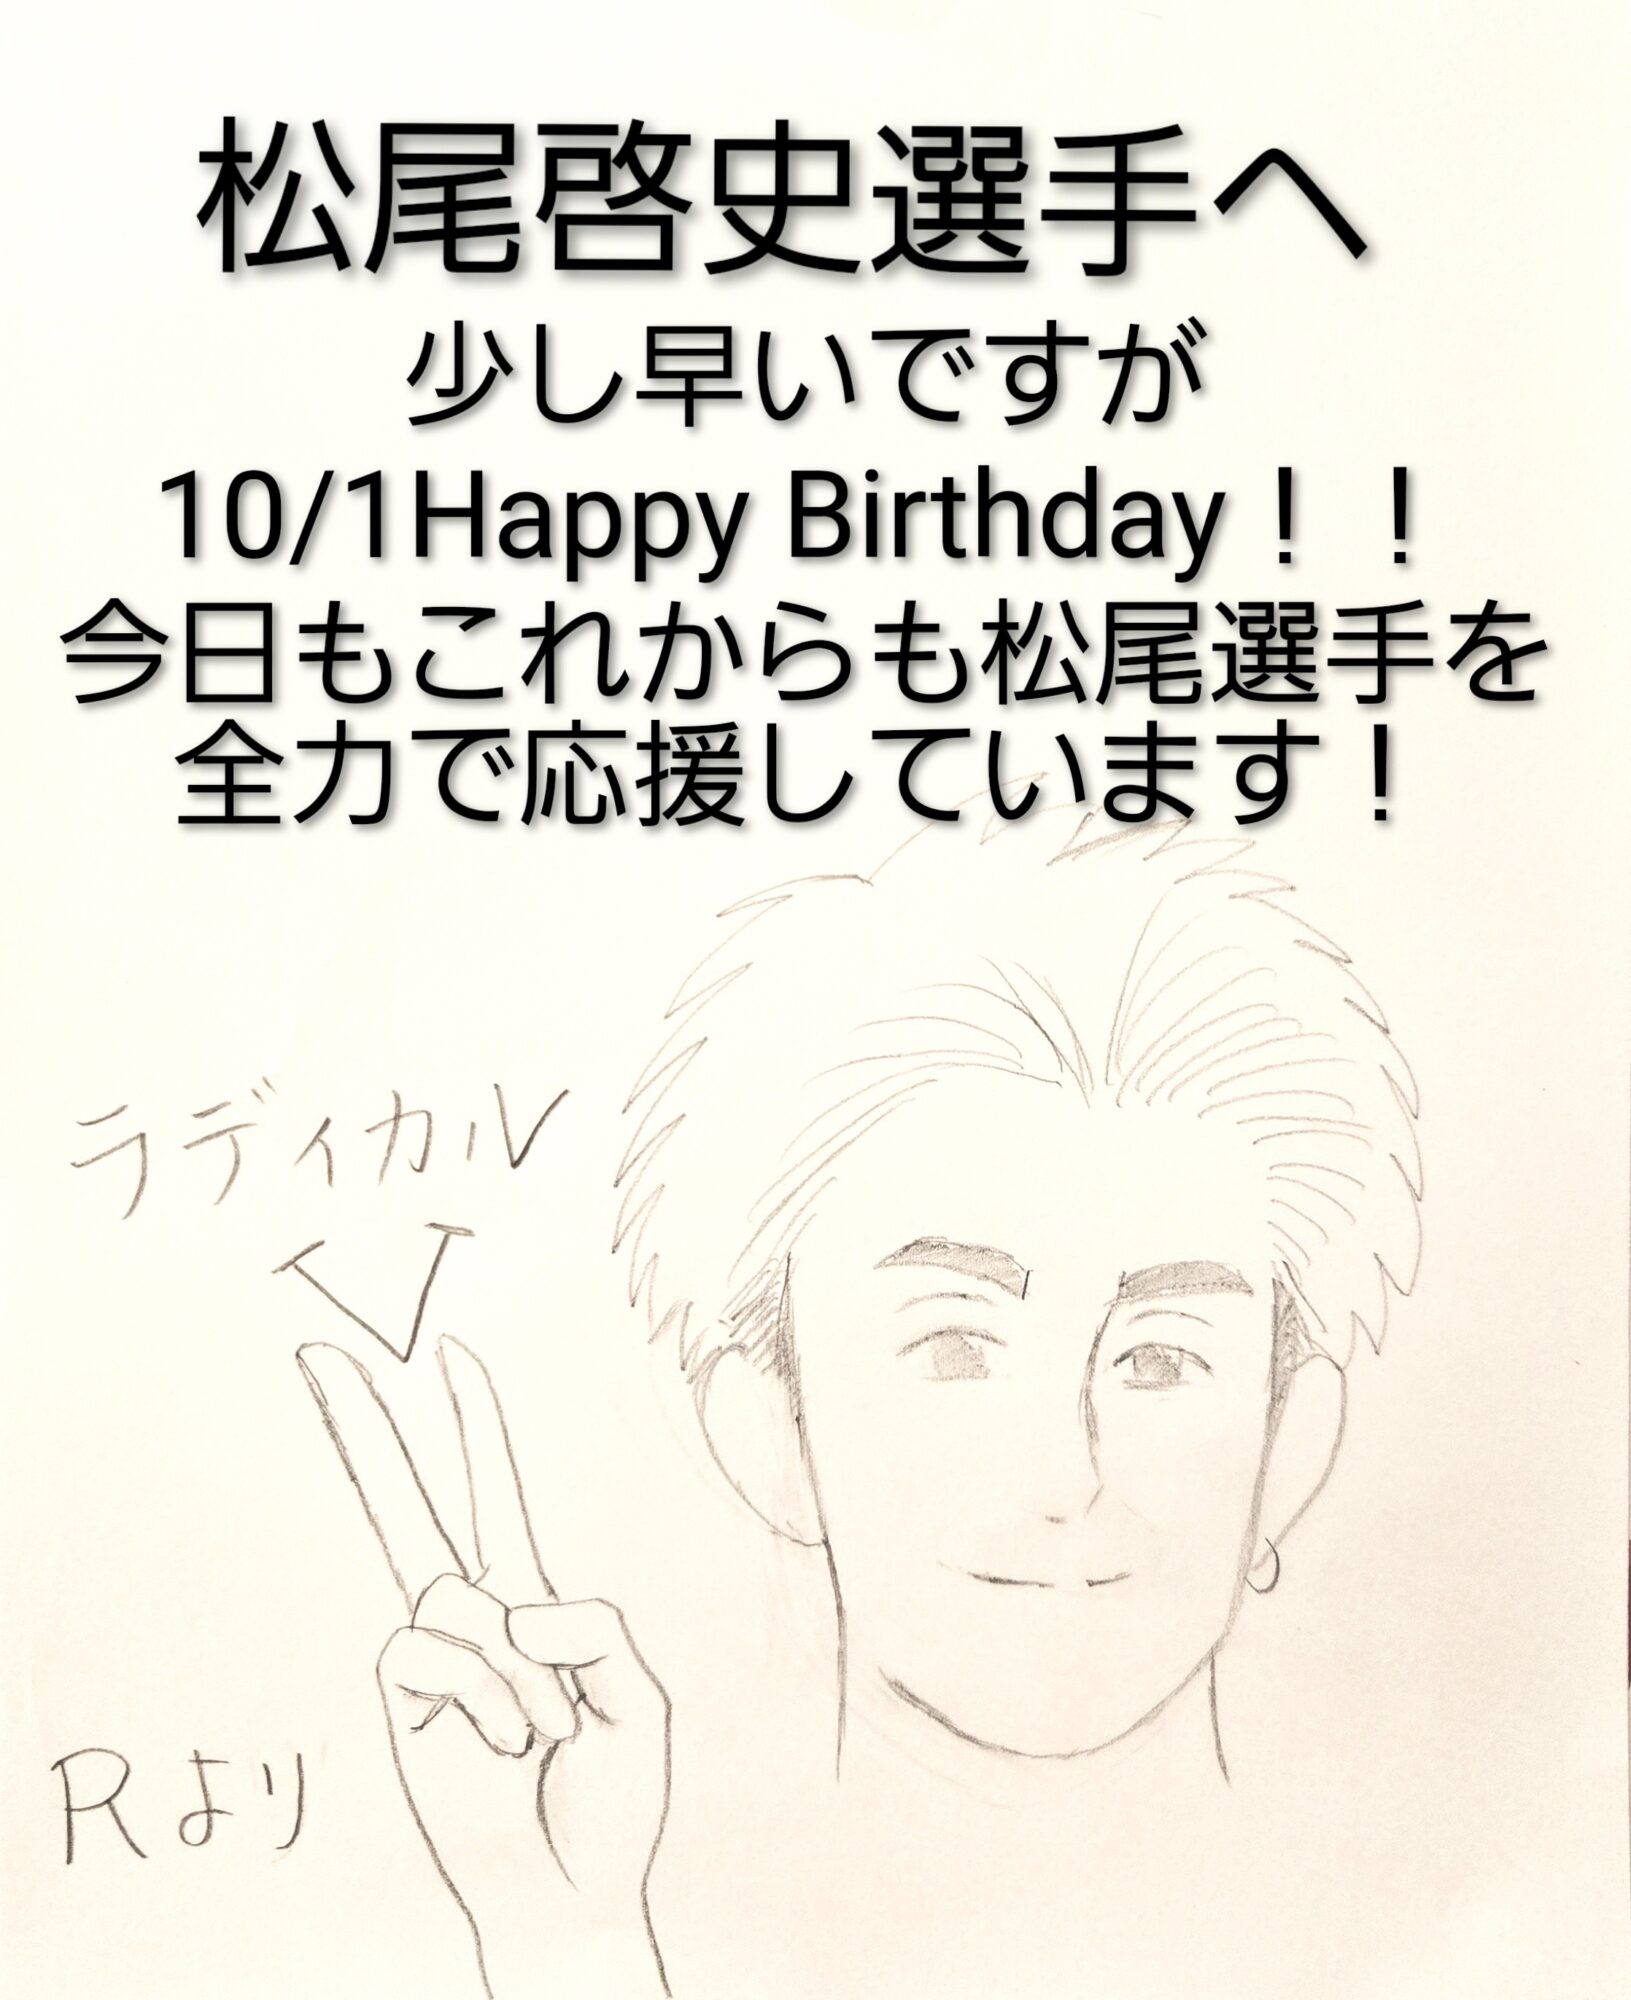 松尾啓史選手へ
少し早いですが
10/1Happy Birthday！！
今日もこれからも松尾選手を
全力で応援しています！
ラディカル
V
Rより